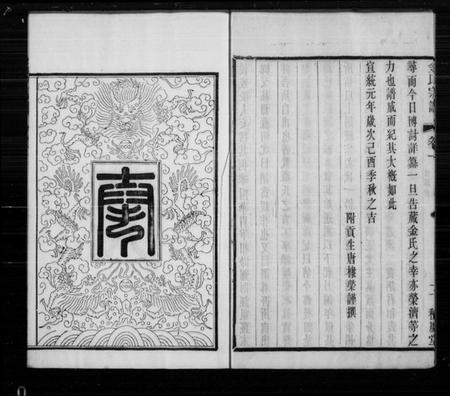 金氏宗譜
尋而今日博討詳纂一旦告蕆金氏之幸亦榮濟等之
力也譜成而紀其大概如此
宣統元年歲次己酉季秋之吉
附貢生唐棣榮謹撰